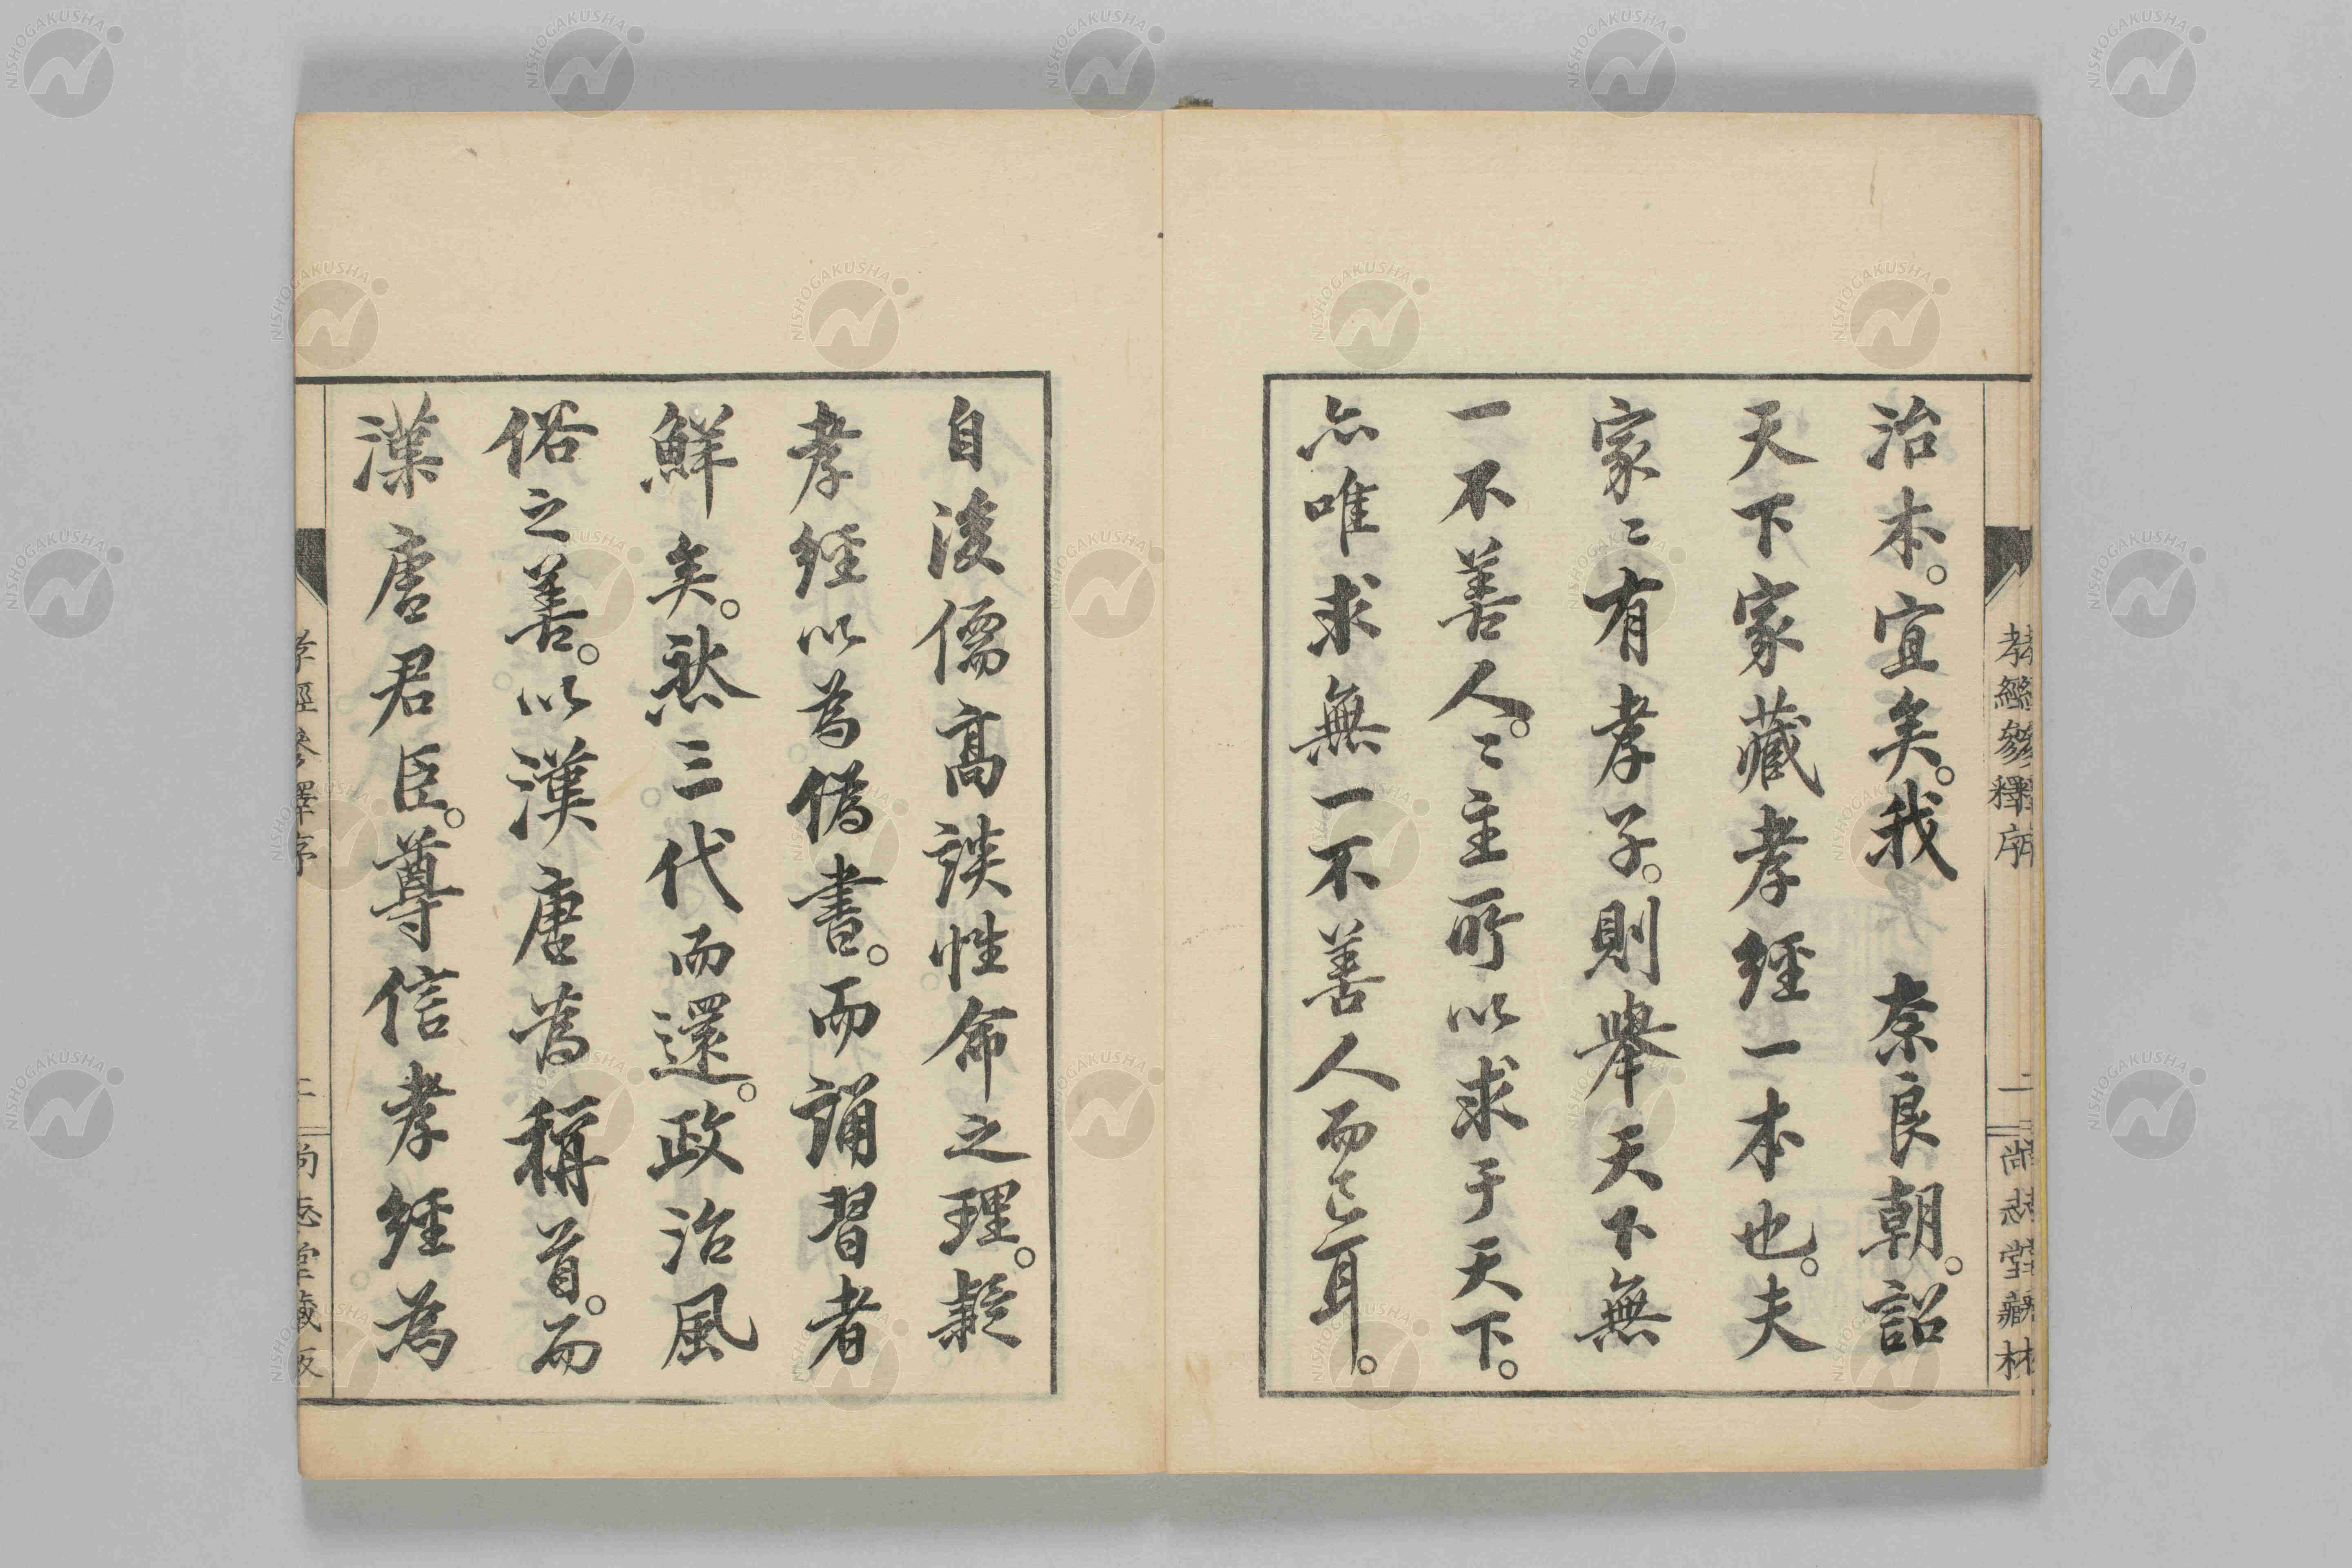 治本。宜矣。我　奈良朝。詔
天下家藏孝経一本也。夫
家〻有孝子。則舉天下無
一不善人。〻主所以求于天下。
亦唯求無一不善人而已耳。
孝經參釋序
二
尚志堂藏
自後儒高談性命之理。疑
孝経以為偽書。而誦習者
鮮矣。然三代而還。政治風
俗之善。以漢唐為稱首。而
漢唐君臣。尊信孝経為
NISHOGAKUSHA